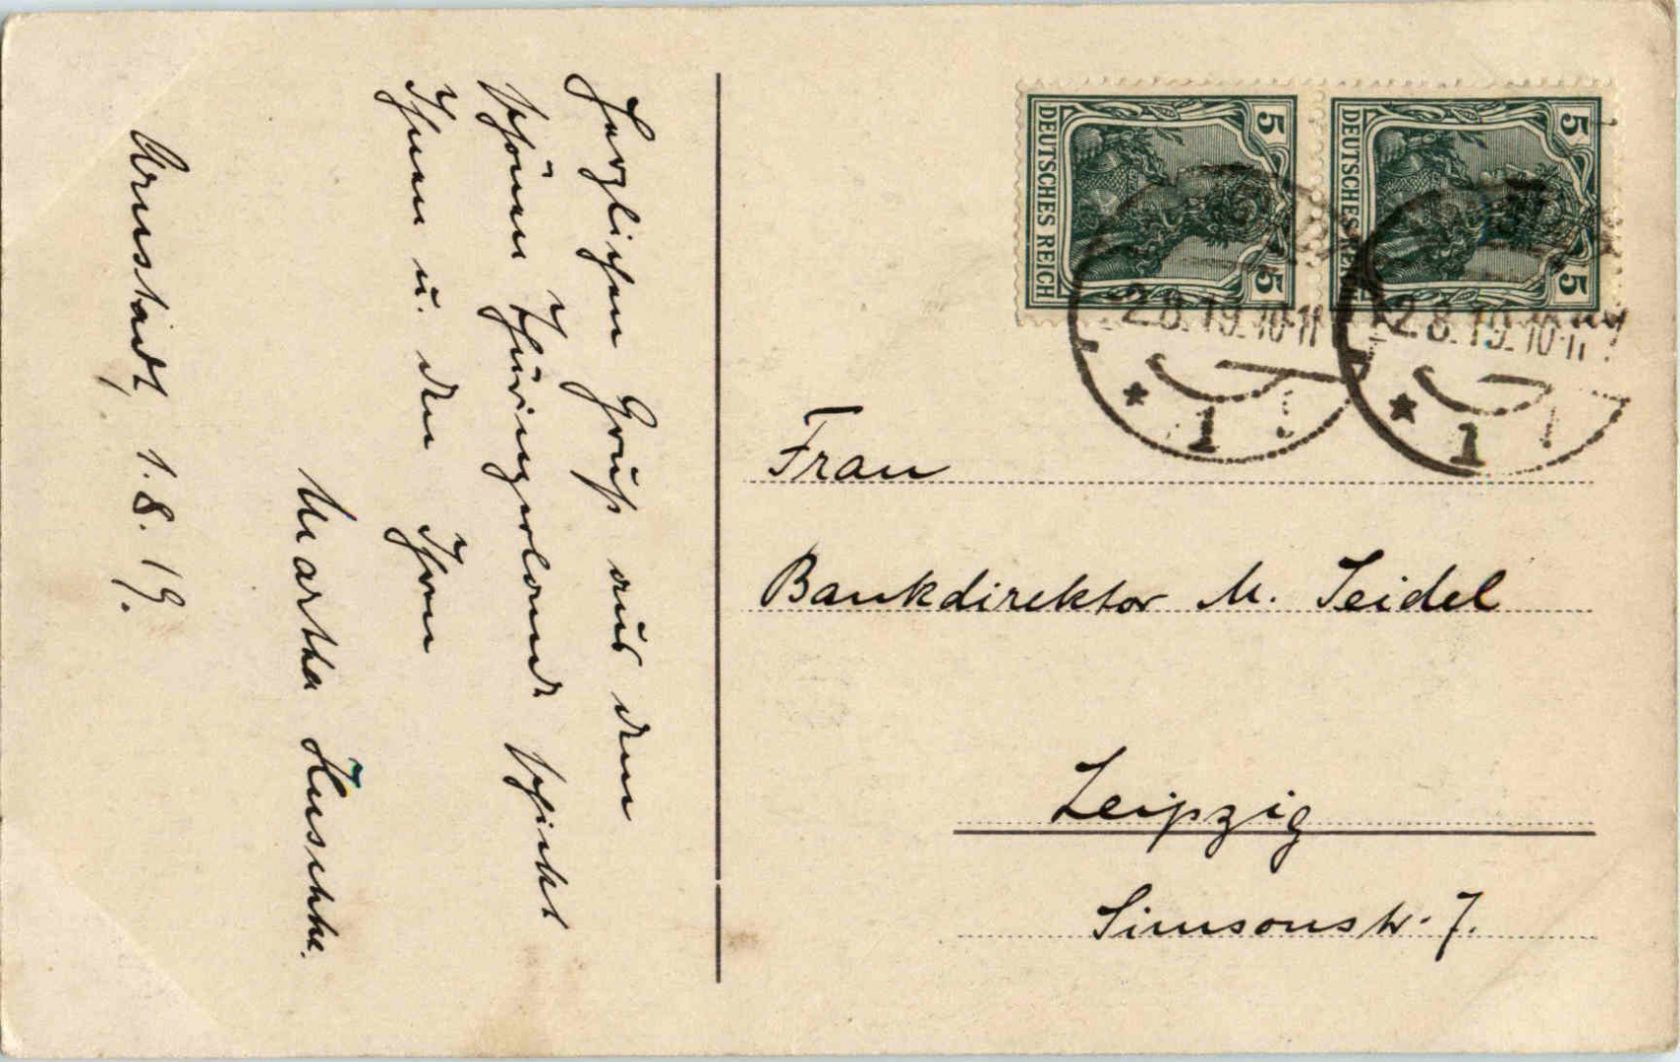 Herzlichen Gruß aus dem
schönen Thüringerland schickt
Ihnen u. den Ihren
Martha Huschke.
Arnstadt, 1.8.19.
5 5
DEUTSCHES REICH
5 5
DEUTSCHES REICH
-2.8.19.10-11
* 1
-2.8.19.10-11
* 1
Frau
Bankdirektor M. Seidel
Leipzig
Simsonstr. 7.